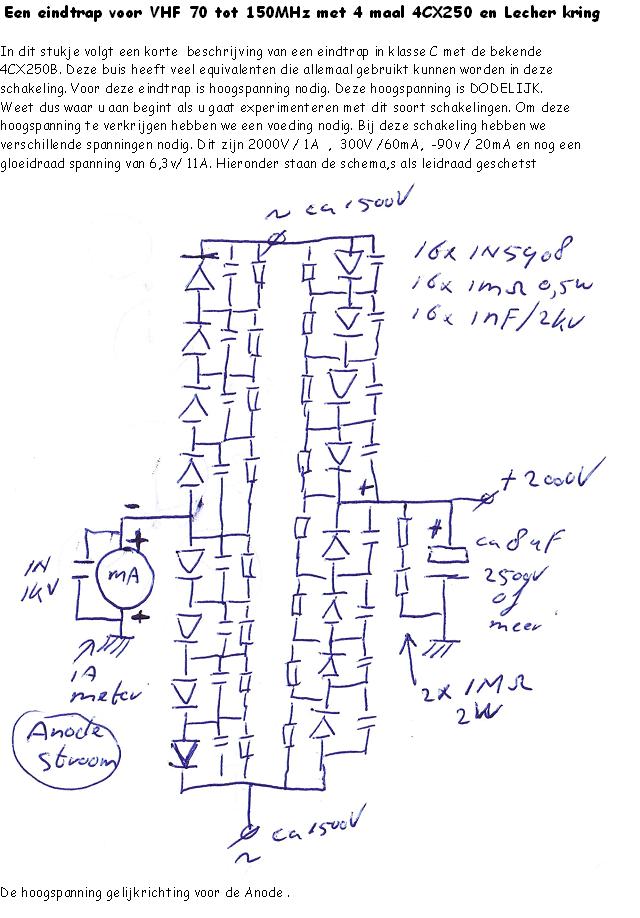 Een eindtrap voor VHF 70 tot 150MHz met 4 maal 4CX250 en Lecher kring
In dit stukje volgt een korte beschrijving van een eindtrap in klasse C met de bekende
4CX250B. Deze buis heeft veel equivalenten die allemaal gebruikt kunnen worden in deze
schakeling. Voor deze eindtrap is hoogspanning nodig. Deze hoogspanning is DODELIJK.
Weet dus waar u aan begint als u gaat experimenteren met dit soort schakelingen. Om deze
hoogspanning te verkrijgen hebben we een voeding nodig. Bij deze schakeling hebben we
verschillende spanningen nodig. Dit zijn 2000V / 1A , 300V /60mA, -90v / 20mA en nog een
gloeidraad spanning van 6,3v/ 11A. Hieronder staan de schema,s als leidraad geschetst
~ ca 1500V
16x 1N5408
16x 1MΩ 0,5W
16x 1nF/2kV
+
+ 2000V
-
+
mA
+
1N
1kV
+
ca 8uF
2500V
of
meer
1A
meter
2x 1MΩ
2W
Anode
stroom
ca 1500V
~
De hoogspanning gelijkrichting voor de Anode .